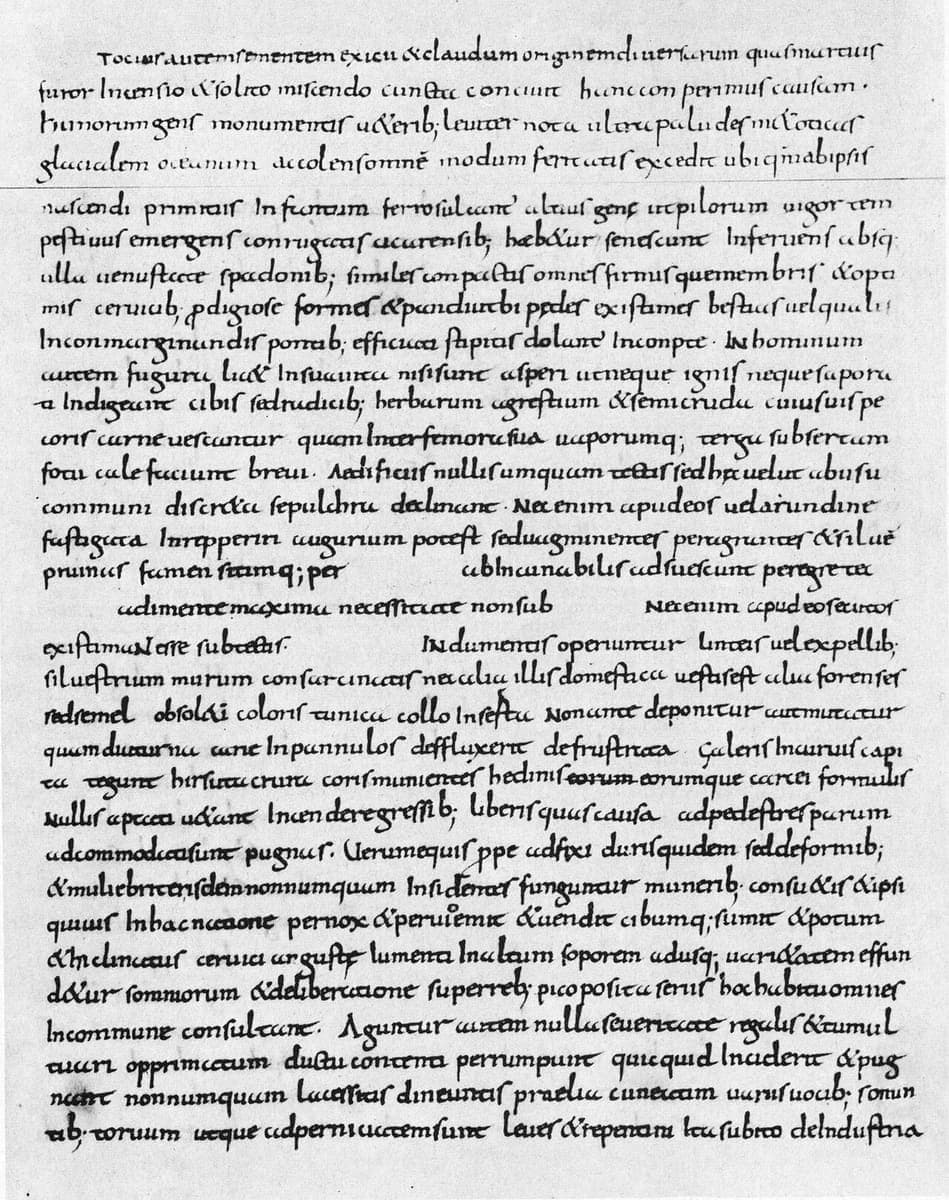 Totius autem sementem exitii & cladum originem diversarum quas martius
furor Incensio & solito miscendo cuncta conciuit hanc conperimus causam.
hunorum gens monumentis u&erib; leuiter nota ultra paludes m&oticas
glacialem oceanum accolens omnẽ modum feritatis excedit ubi quiñ ab ipsis
nascendi primitiis Infantum ferro sulcant altius genę ut pilorum uigor tem
pestiuus emergens conrugatis cicatensib; hæb&ur senescunt Inferuens absq
ulla uenustate spadonib; similes conpactis omnes firmis que membris & opi
mis ceruicib; prodigiose formes & pandi ut bi pedes existimes bestias uel quali
Inconmarginandis pontib; efficiati stipitas dolant Inconpte. IN hominum
autem fugura lic& Insuauita nisi sunt asperi ut neque ignis neque sapora
ti Indigeant cibis sed radicib; herbarum agrestium & semicruda cuiusuis pe
coris carne uescantur quam Inter femora sua uaporumq; terga subsertam
fotu calefaciunt breui. Aedificiis nullis umquam tectis sed hęc uelut ab usu
communi discr&a sepulchra declinant. Nec enim apud eos uel arundine
fastigata Inrepperiri augurium potest sed uagi minentes peragrantes & siluẽ
pruinas famen sitimq; per ab Incunabilis adsuescunt peregre tec
adimente maxima necessitate non sub Nec enim apud eos securos
existimaNesse sub tectis. INdumentis operiuntur linteis uel expellib;
siluestrium murum consarcinatis nec alia illis domestica uestis est alia forenses
sed semel obsol&i coloris tunica collo Inserta Non ante deponitur aut mutatur
quam diuturna carie Inpannulos deffluxerit defrustrata Galeris Incuruis capi
ta tegunt hirsuta crura coris munientes hedinis eorum eorumque calcei formulis
Nullis aptati u&ant Incendere gressib; liberis qua causa ad pedestres parum
adcommodati sunt pugnas. Uerum equis ppe adfixi duris quidem sed deformib;
& muliebriter isdem nonnumquam Insidentes funguntur munerib; consu&is & ipsi
quiuis Inhac natione pernox & perui emit & uendit cibumq; sumit & potum
& Inclinatus ceruici angustę iumenti Inaltum soporem adusq; uari&atem effun
d&ur somniorum & deliberatione super reb; pico posita seriis hoc habitu omnes
Incommune consultant. Aguntur autem nulla seueritate regalis & tumul
tuari opprimatum ductu contenti perrumpunt quicquid Inciderit & pug
nant nonnumquam lacessitis dineuntis praelia cuneatim uariis uocib; sonan
tib; toruum utque ad pernicitatem sunt leues & repentini Ita subito deIndustria